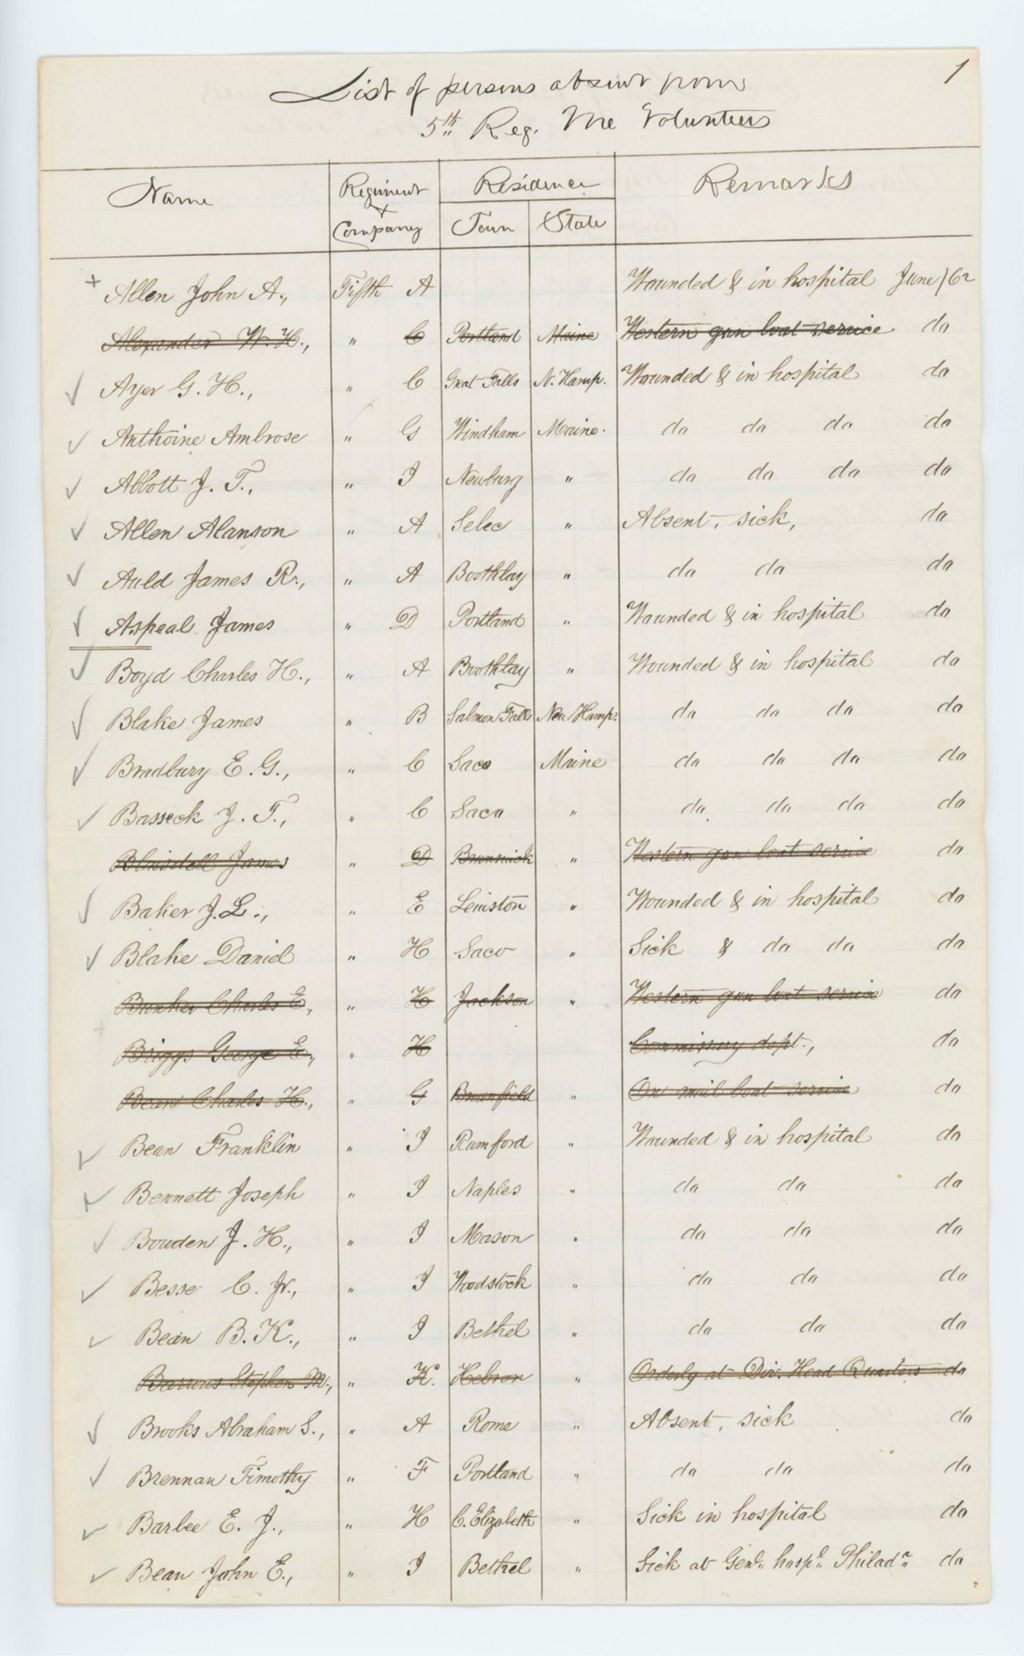 1
List of persons absent from
5th Reg. Me Volunteers
Name Regiment & Company Residence Town State Remarks
+ Allen John A., Fifth A Wounded & in hospital June/62
Alexander W. H., " C Portland Maine Western gun boat service do
✓ Ayer G. H., " C Great Falls N. Hamp. Wounded & in hospital do
✓ Anthoine Ambrose " G Windham Maine. do do do do
✓ Abbott J. T., " I Newburg " do do do do
✓ Allen Alanson " A Selec " Absent, sick, do
✓ Auld James R., " A Boothbay " do do do
✓ Aspeal James " D Portland " Wounded & in hospital do
✓ Boyd Charles H., " A Boothbay " Wounded & in hospital do
✓ Blake James " B Salmon Falls New Hamp: do do do do
✓ Bradbury E. G., " C Saco Maine do do do do
✓ Basseck J. T., " C Saco " do do do do
Blaisdell James " D Brunswick " Western gun boat service do
✓ Baker J. L., " E Lewiston " Wounded & in hospital do
✓ Blake Daniel " H Saco " Sick & do do do
Bunker Charles E, " H Jackson " Western gun boat service do
Briggs George E., " H Commissary dept., do
Bean Charles H., " G Brownfield " On mail boat service do
✓ Bean Franklin " I Rumford " Wounded & in hospital do
✓ Bennett Joseph " I Naples " do do do
✓ Bouden J. H., " I Mason " do do do
✓ Besse C. Jr., " I Woodstock " do do do
✓ Bean B. K., " I Bethel " do do do
Barrows Stephen M., " K. Hebron " Orderly at Div. Head Quarters do
✓ Brooks Abraham S., " A Rome " Absent, sick do
✓ Brennan Timothy " F Portland " do do do
✓ Barbee E. J., " H C. Elizabeth " Sick in hospital do
✓ Bean John E., " I Bethel " Sick at Genl. hospl. Philada do